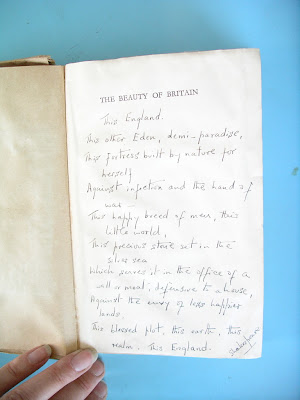 THE BEAUTY OF BRITAIN
This England.
This other Eden, demi-paradise,
This fortress built by nature for
herself
Against infection and the hand of
war —
This happy breed of men, this
little world,
This precious stone set in the
silver sea
Which serves it in the office of a
wall or moat, defensive to a house,
Against the envy of less happier
lands.
This blessed plot, this earth, this
realm. This England.
Shakespeare